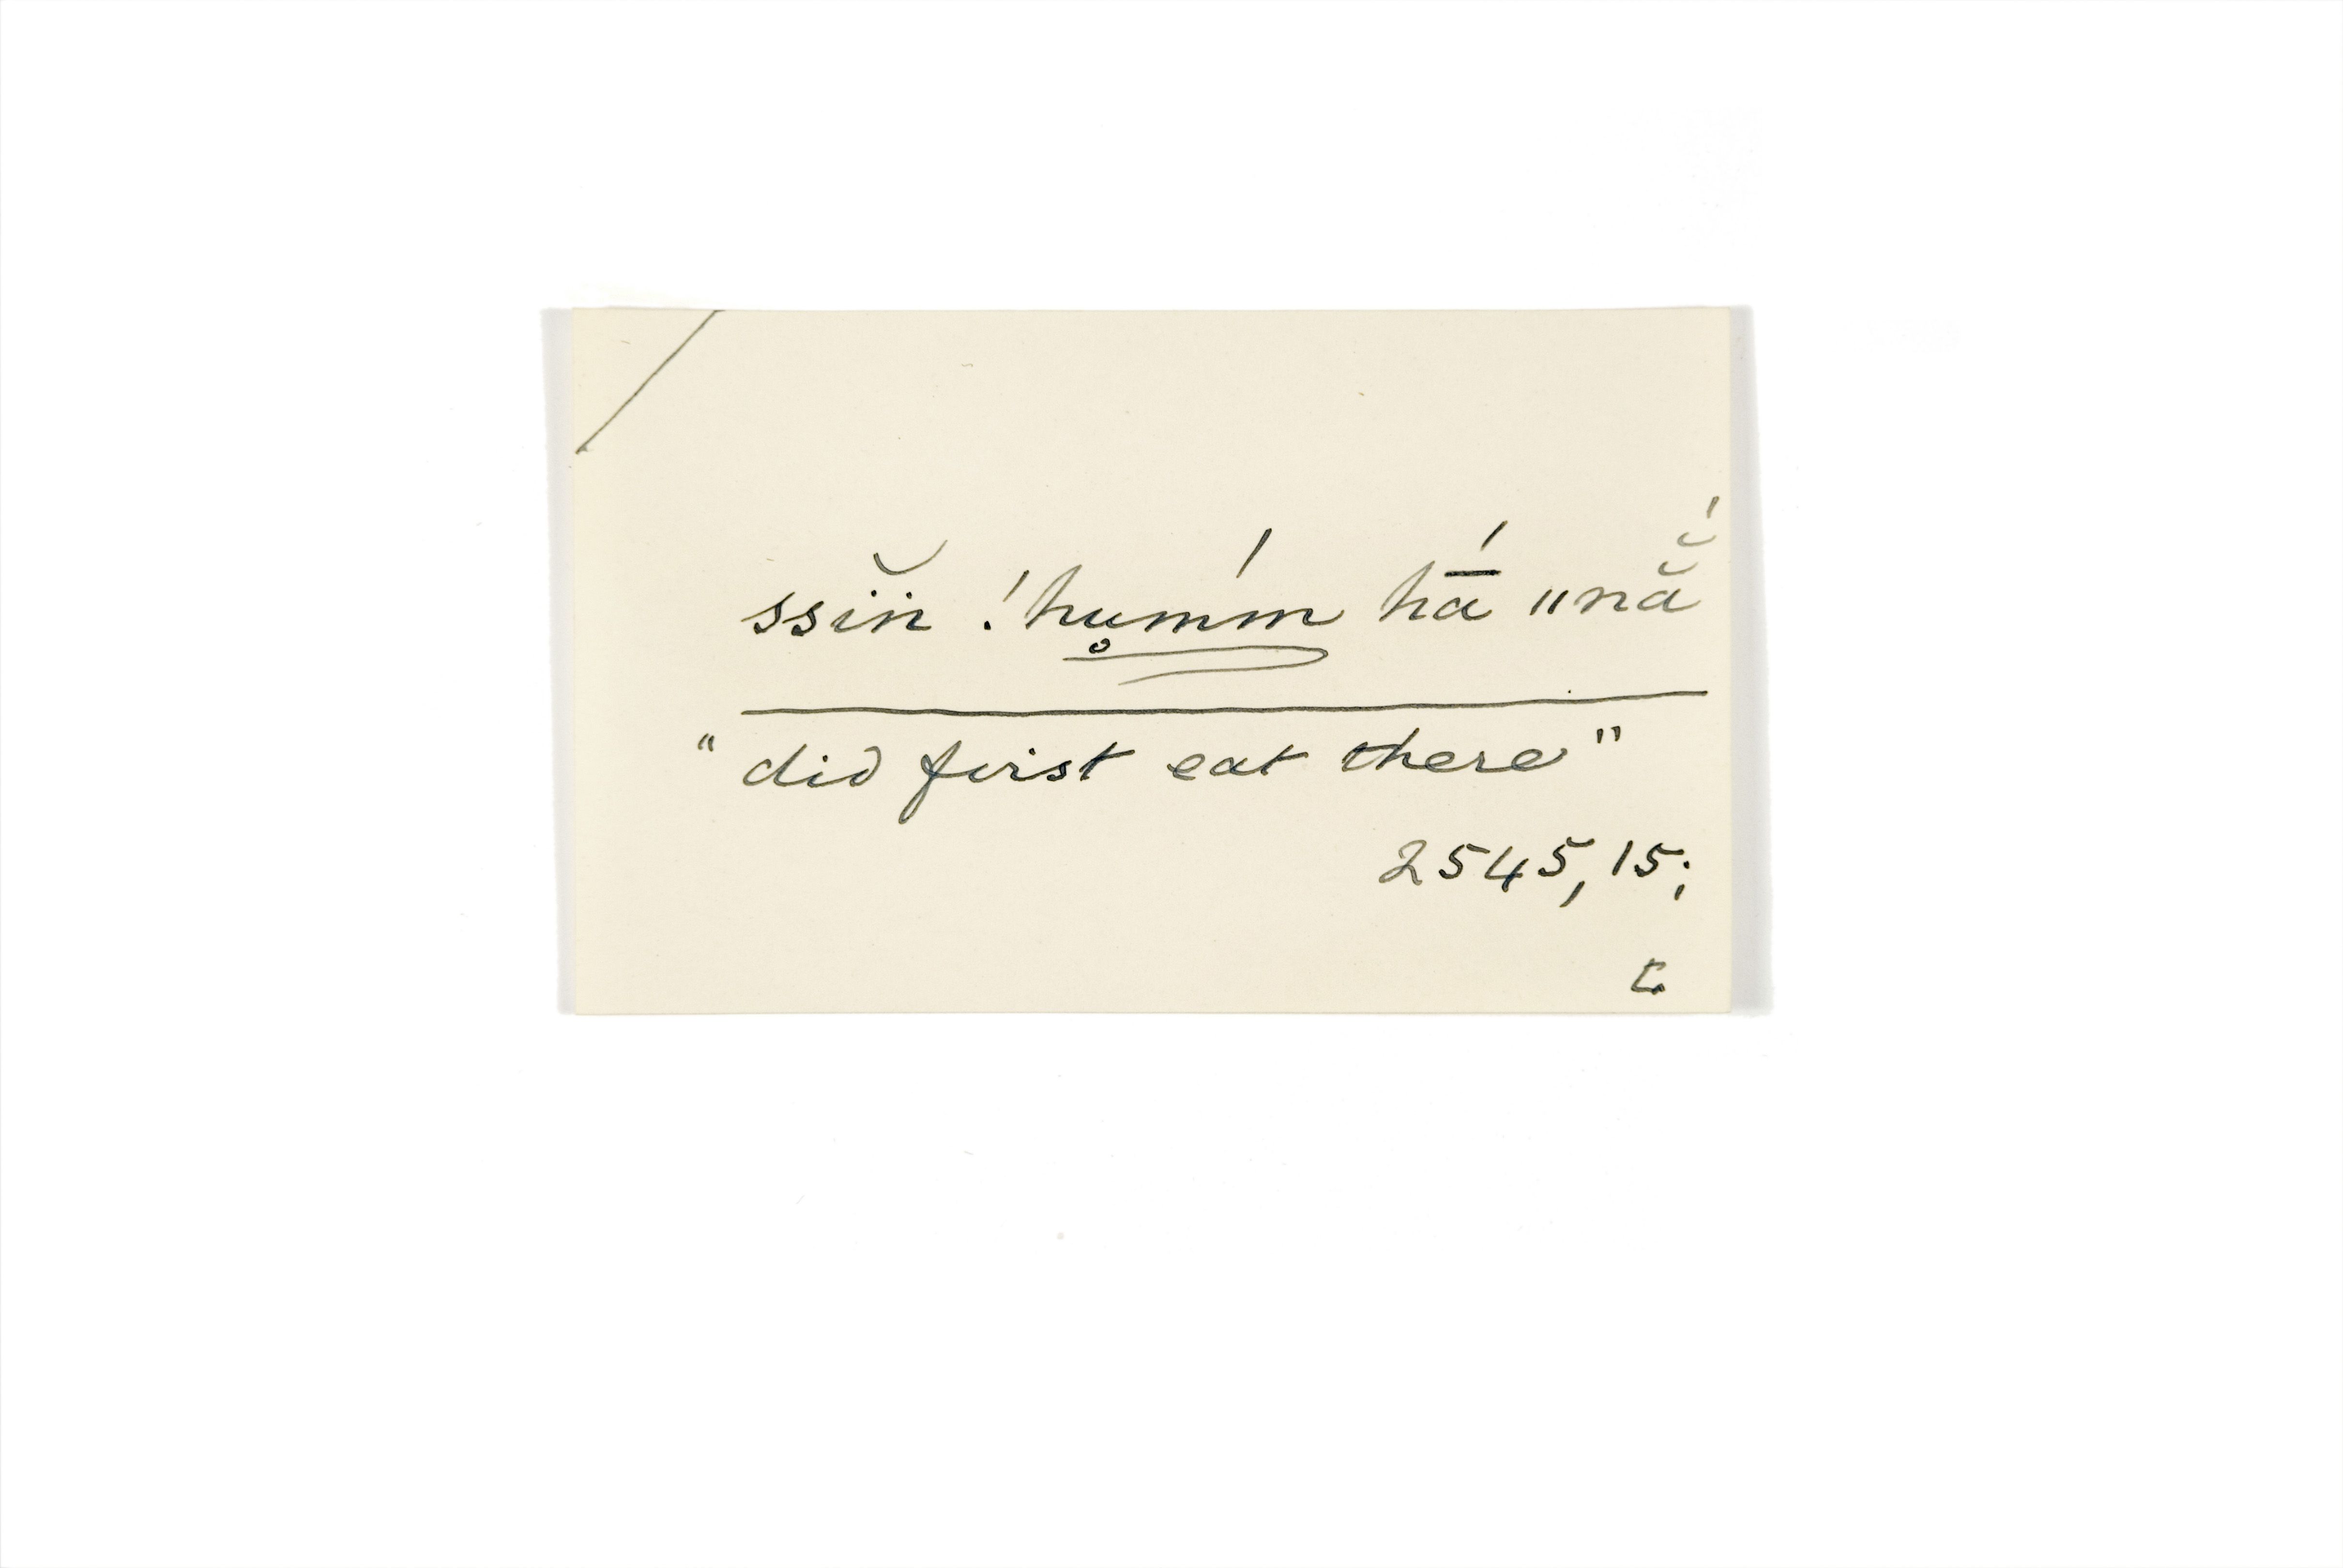 ssĭṅ !hu̥mḿ hā́ ǁnă̆́
"did first eat there"
2545,15;